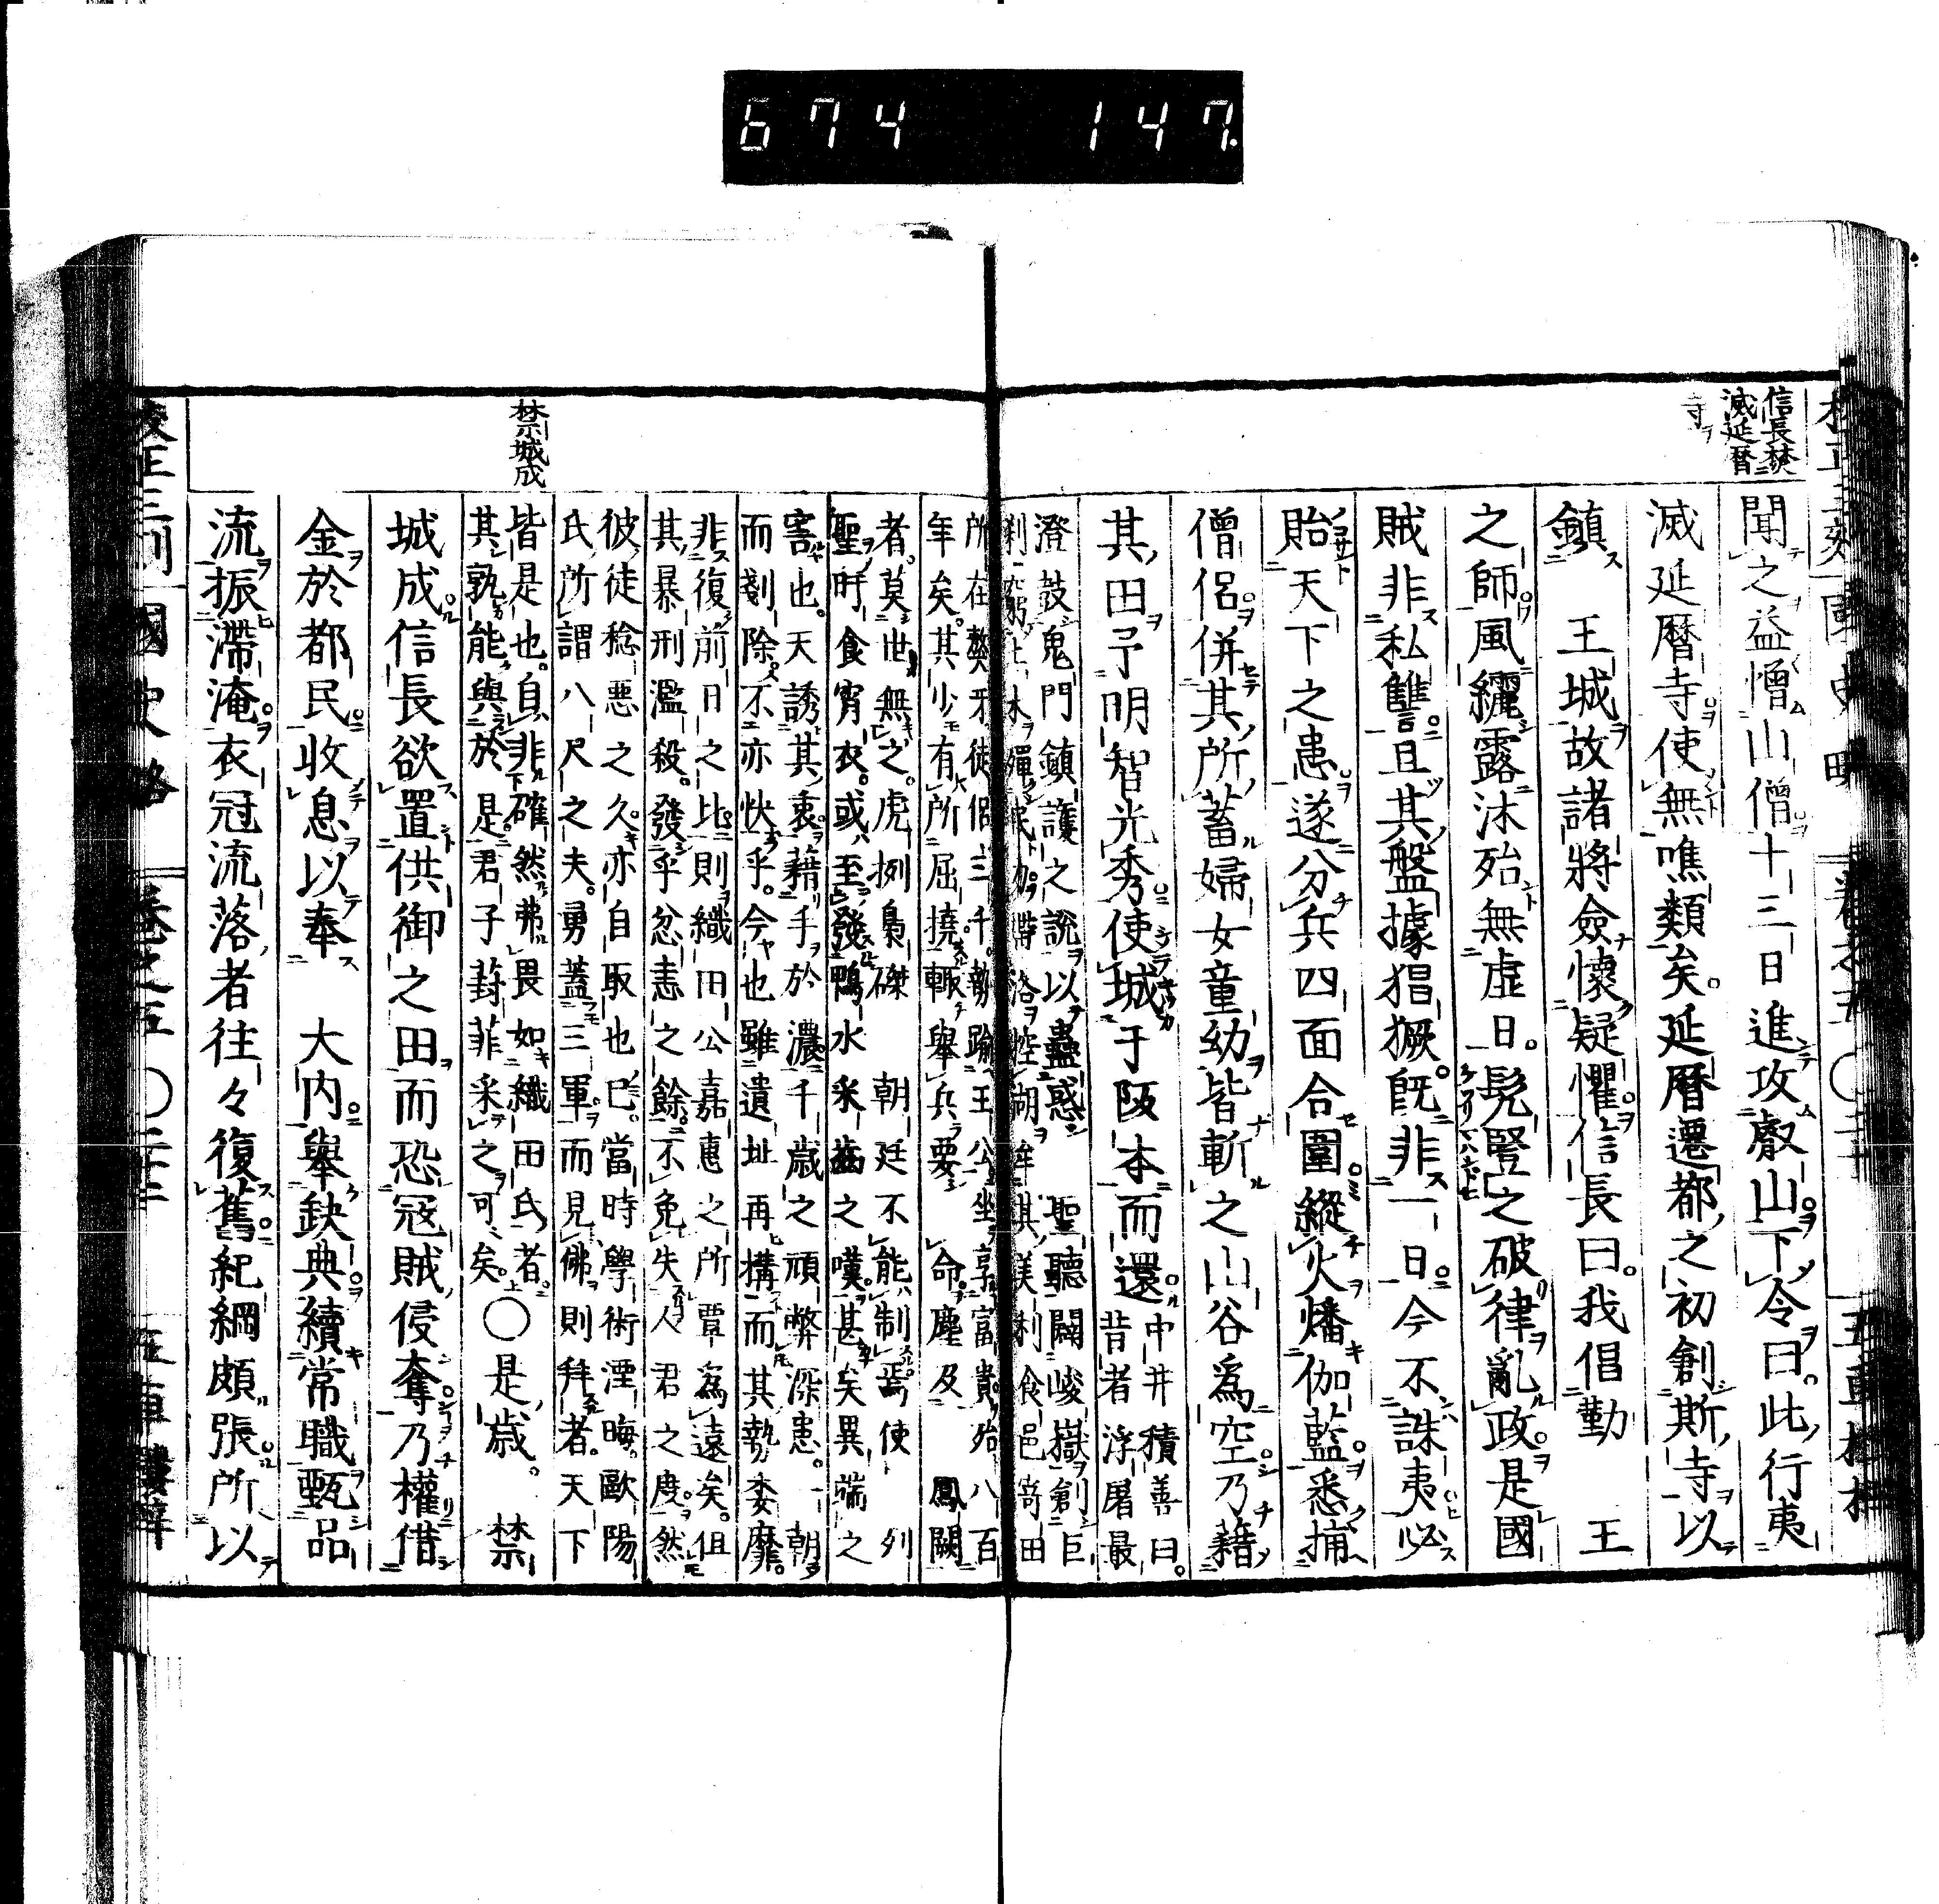 674 147.
信長焚
滅延暦
寺ヲ
聞之益憎山僧十三日進攻叡山下令曰此行夷
滅延暦寺使無噍類矣延暦遷都之初創斯寺以
鎮 王城故諸將僉懷疑懼信長曰我倡勤 王
之師風纚露沐殆無虛日髡豎之破律亂政是國
賊非私讐且其盤據猖獗既非一日今不誅夷必
貽天下之患遂分兵四面合圍縱火燔伽藍悉捕
僧侶併其所蓄婦女童幼皆斬之山谷爲空乃藉
其田予明智光秀使城于阪本而還
中井積善曰
昔者浮屠最
澄鼓鬼門鎮護之說以蠱惑 聖聽闢峻嶽創巨
刹窮土木殫民力帶洛控湖 其 利食邑 田
所在 牙徒侶三千勢踰王公坐享富貴殆八百
年矣其少有所屈撓輒舉兵要 命塵及 鳳闕
者莫世無之虎捌梟磔 朝廷不能制焉使 列
聖旰食宵衣或至發鴨水 之嘆甚矣異端之
害也天誘其衷藉手於濃千歳之頑弊深患一朝
而剗除不亦快乎今也雖遺址再構而其勢委靡
非復前日之比則織田公嘉惠之所覃爲遠矣但
其暴刑濫殺發乎忿恚之餘不免失人君之度然
彼徒稔惡之久亦自取也已當時學術湮晦歐陽
氏所謂八尺之夫勇蓋三軍而見佛則拜者天下
皆是也自非確然弗畏如織田氏者
其孰能與於是君子葑菲采之可矣
○是歳 禁
禁城成
城成信長欲置供御之田而恐冦賊侵奪乃權借
金於都民收息以奉 大内舉缺典續常職甄品
流振滯淹衣冠流落者往々復舊紀綱頗張所以
校正三刻 國史略 卷之五 ○三十三 五車樓梓